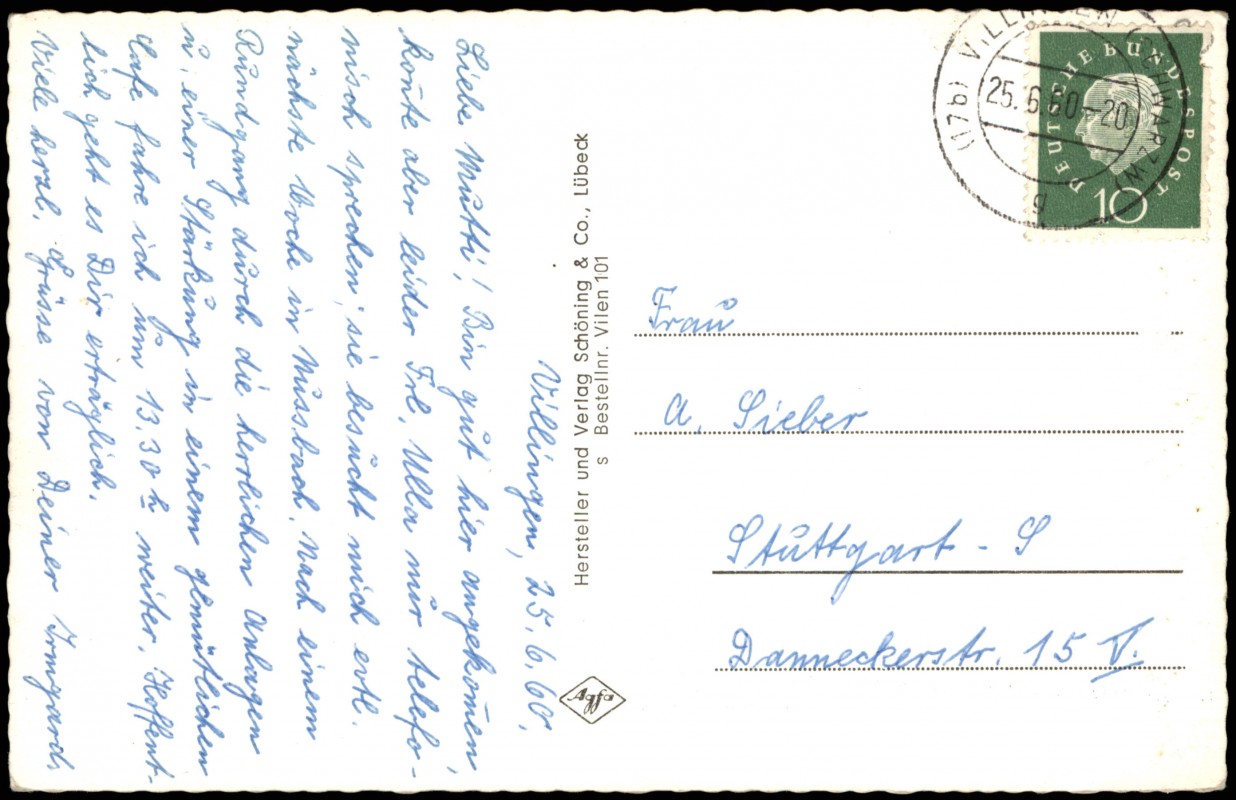 Villingen, 25.6.60.
Liebe Mutti! Bin gut hier angekom̄en,
kon̄te aber leider Frl. Ulla nur telefo-
nisch sprechen; sie besucht mich evtl.
nächste Woche in Nussbach. Nach einem
Rundgang durch die herrlichen Anlagen
u. einer Stärkung in einem gemütlichen
Cafe fahre ich um 13.30 h weiter. Hoffent-
lich geht es Dir erträglich.
Viele herzl. Grüsse von Deiner Irmgard.
Hersteller und Verlag Schöning & Co., Lübeck
s Bestellnr. Vilen 101
Agfa
(17b) VILLINGEN (SCHWARZW)
25.6.60-20
a
DEUTSCHE BUNDESPOST
10
Frau
A. Sieber
Stuttgart - S
Danneckerstr. 15 V.